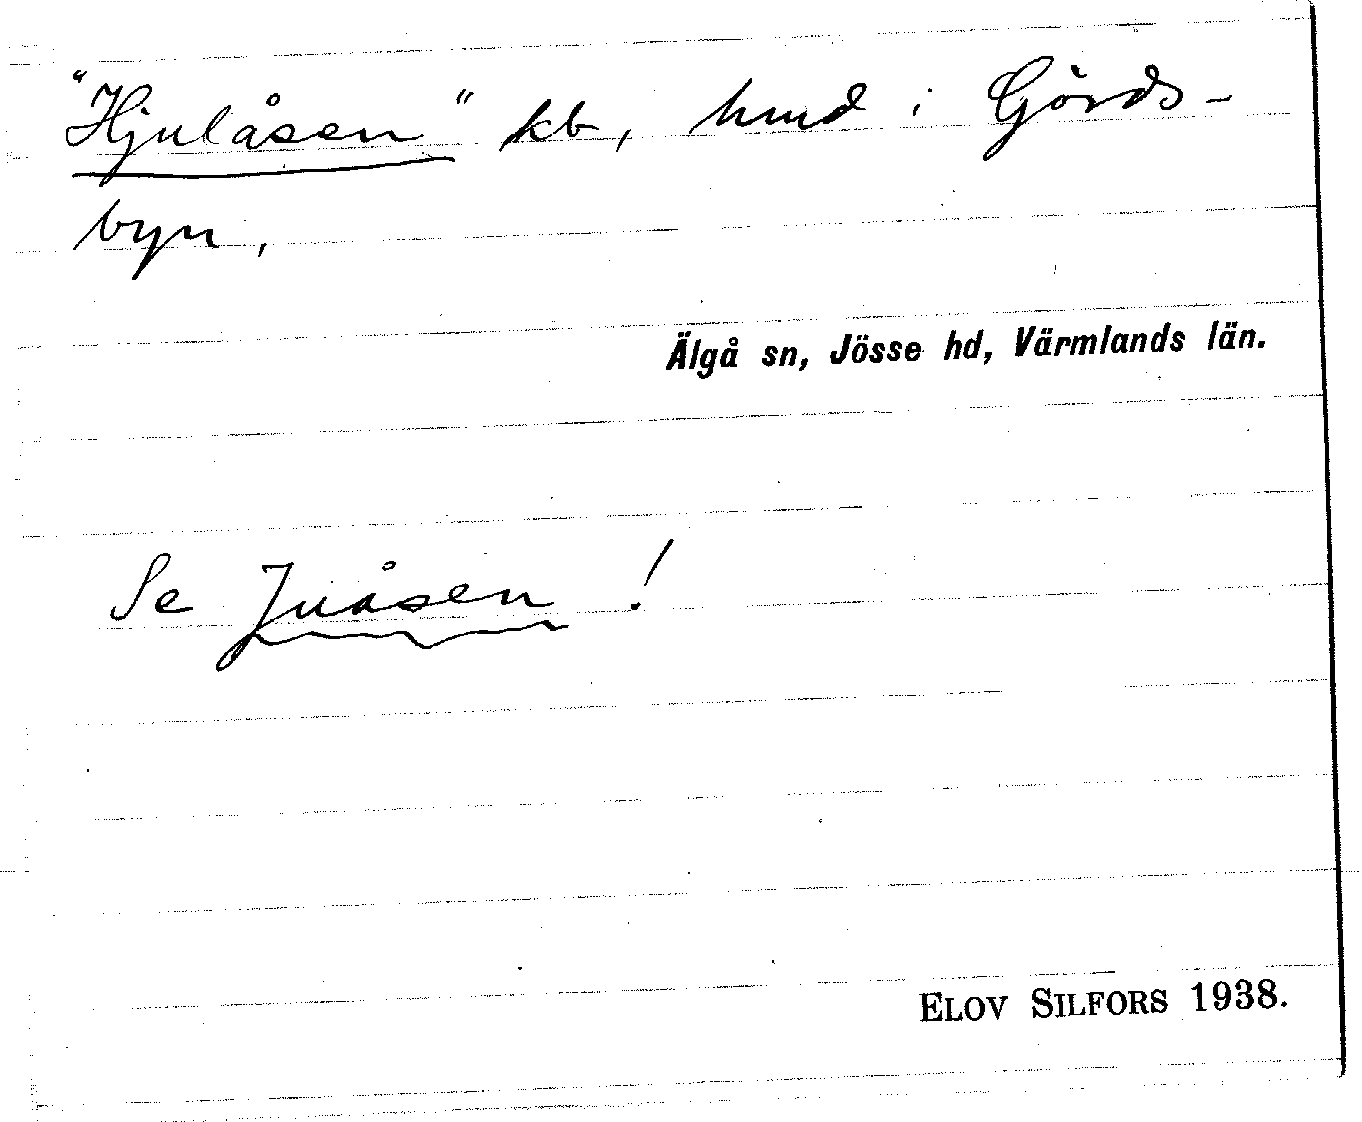 "Hjulåsen" kb, hmd i Görds-
byn,
Älgå sn, Jösse hd, Värmlands län.
Se Juåsen!
ELOV SILFORS 1938.